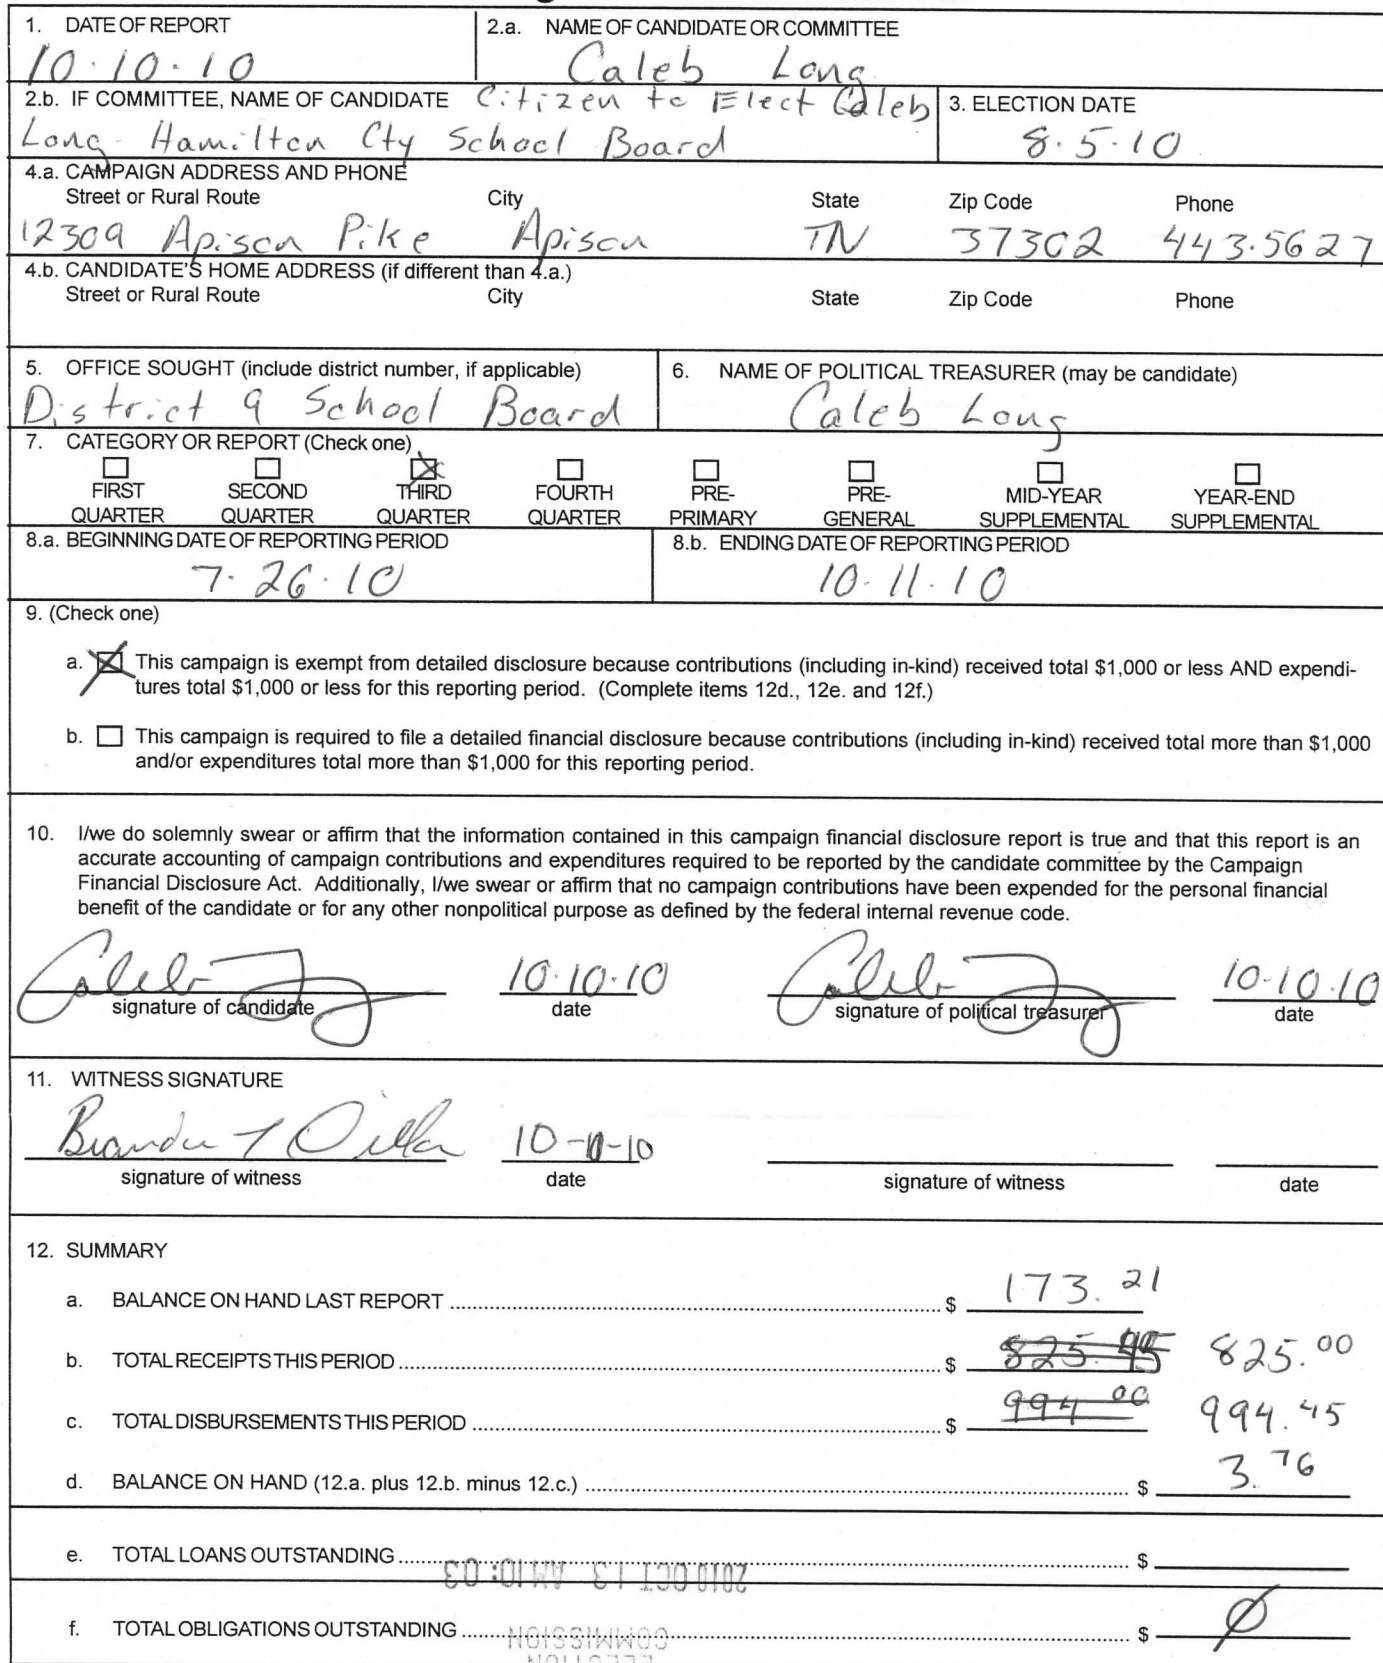 1. DATE OF REPORT
10.10.10
2.a. NAME OF CANDIDATE OR COMMITTEE
Caleb Long
2.b. IF COMMITTEE, NAME OF CANDIDATE Citizen to Elect Caleb
Long - Hamilton Cty School Board
3. ELECTION DATE
8.5.10
4.a. CAMPAIGN ADDRESS AND PHONE
Street or Rural Route City State Zip Code Phone
12309 Apison Pike Apison TN 37302 443.5627
4.b. CANDIDATE'S HOME ADDRESS (if different than 4.a.)
Street or Rural Route City State Zip Code Phone
5. OFFICE SOUGHT (include district number, if applicable)
District 9 School Board
6. NAME OF POLITICAL TREASURER (may be candidate)
Caleb Long
7. CATEGORY OR REPORT (Check one)
FIRST SECOND THIRD FOURTH PRE- PRE- MID-YEAR YEAR-END
QUARTER QUARTER QUARTER QUARTER PRIMARY GENERAL SUPPLEMENTAL SUPPLEMENTAL
8.a. BEGINNING DATE OF REPORTING PERIOD
7.26.10
8.b. ENDING DATE OF REPORTING PERIOD
10.11.10
9. (Check one)
a. This campaign is exempt from detailed disclosure because contributions (including in-kind) received total $1,000 or less AND expendi-
tures total $1,000 or less for this reporting period. (Complete items 12d., 12e. and 12f.)
b. This campaign is required to file a detailed financial disclosure because contributions (including in-kind) received total more than $1,000
and/or expenditures total more than $1,000 for this reporting period.
10. I/we do solemnly swear or affirm that the information contained in this campaign financial disclosure report is true and that this report is an
accurate accounting of campaign contributions and expenditures required to be reported by the candidate committee by the Campaign
Financial Disclosure Act. Additionally, I/we swear or affirm that no campaign contributions have been expended for the personal financial
benefit of the candidate or for any other nonpolitical purpose as defined by the federal internal revenue code.
Caleb 10.10.10 Caleb 10.10.10
signature of candidate date signature of political treasurer date
11. WITNESS SIGNATURE
10-11-10
signature of witness date signature of witness date
12. SUMMARY
a. BALANCE ON HAND LAST REPORT $ 173.21
b. TOTAL RECEIPTS THIS PERIOD $ 825.45 825.00
c. TOTAL DISBURSEMENTS THIS PERIOD $ 994 00 994.45
d. BALANCE ON HAND (12.a. plus 12.b. minus 12.c.) $ 3.76
e. TOTAL LOANS OUTSTANDING $
2010 OCT 13 AM 10: 03
f. TOTAL OBLIGATIONS OUTSTANDING $ Ø
COMMISSION
ELECTION